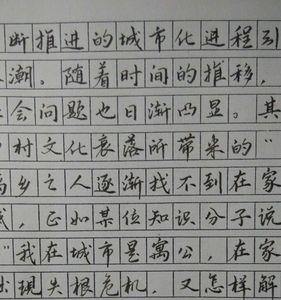 断推进的城市化进程引
潮。随着时间的推移，
会问题也日渐凸显。其
村文化衰落所带来的“
乡之人逐渐找不到在家
，正如某位知识分子说
“我在城市是寓公，在家
现失根危机，又怎样解